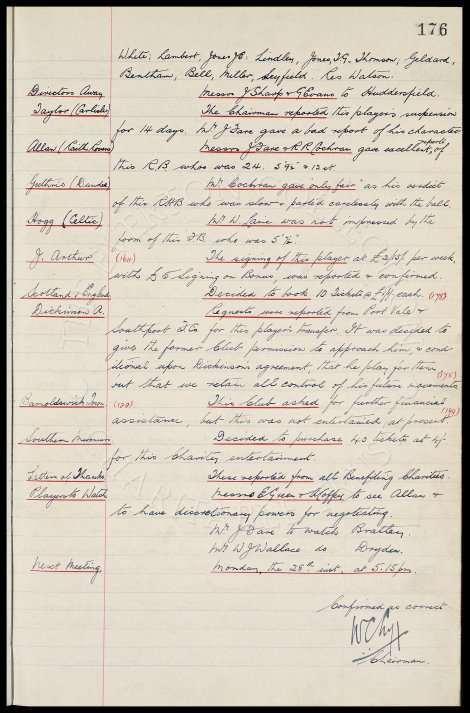 176
White; Lambert, Jones J.E. Lindley, Jones, T.G. Thomson; Geldard,
Bentham, Bell, Miller, Leyfield. Res Watson.
Directors Away Messrs J Sharp & G Evans to Huddersfield.
Taylor (Carlisle) The Chairman reported this players suspension
for 14 days. Mr J Fare gave a bad report of his character
reports
Allan (Raith Rovers) Messrs J Fare & R.R. Cochran gave excellent, of
this R.B who was 24. 5' 9½" & 12 st.
Guthrie (Dundee) Mr Cochran gave only fair" as his verdict
of this RHB who was slow & parted carelessly with the ball.
Hogg (Celtic) Mr W Lane was not impressed by the
form of this F.B. who was
J. Arthur (164) The signing of this player at £3/5/- per week,
with £5 Signing on Bonus, was reported & confirmed.
Scotland v England Decided to book 10 Tickets @ each. (178)
Dickinson A. Requests were reported from Port Vale &
Southport F.Cs for this player's transfer. It was decided to
give the former Club permission to approach him & cond-
itional upon Dickinson's agreement, that he play for them
(178)
but that we retain all control of his future movements.
Barnoldswick Town (123) This Club asked for further financial
(190)
assistance, but this was not entertained at present.
Southern Decided to purchase 40 tickets at 4/-
for this Charities entertainment.
Letters of Thanks These reported from all Benefiting Charities.
Players to Watch Messrs E Green & to see Allan &
to have discretionary powers for negotiating.
Mr J Fare to watch Brattan.
Mr W J Wallace do Dryden.
Next Meeting Monday, the 28th inst, at 5.15 pm.
Confirmed as correct
W C Cuff
Chairman.